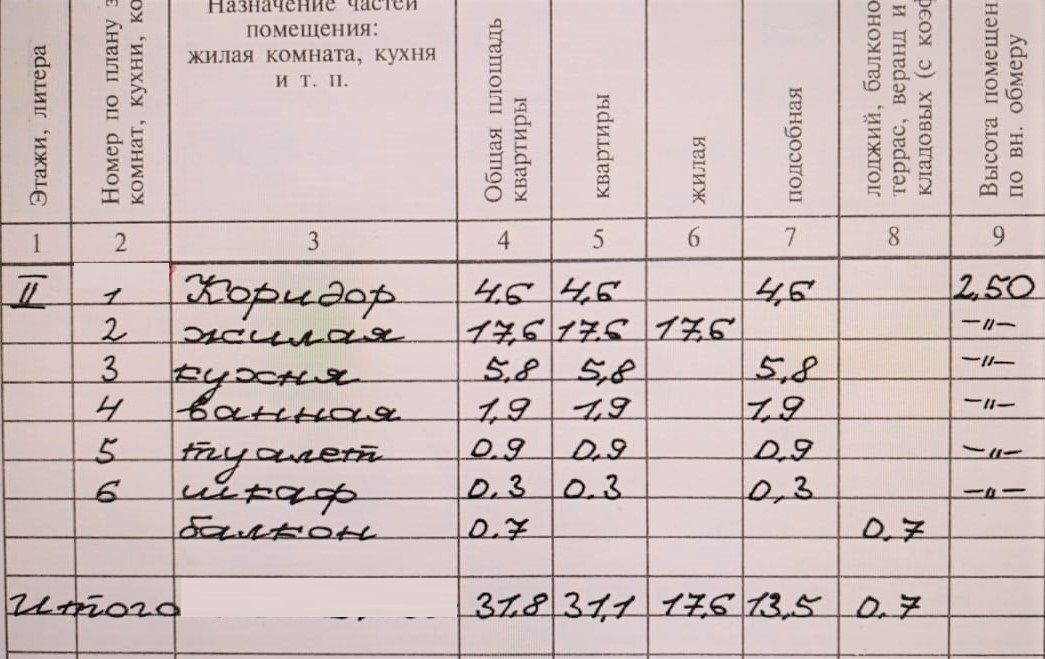 Этажи, литера
Номер по плану
комнат, кухни,
Назначение частей
помещения:
жилая комната, кухня
и т. п.
Общая площадь
квартиры
квартиры
жилая
подсобная
лоджий, балконо
террас, веранд и
кладовых (с коэф
Высота помещен
по вн. обмеру
1 2 3 4 5 6 7 8 9
II 1 Коридор 4,6 4,6 4,6 2,50
2 жилая 17,6 17.6 17,6 –"–
3 кухня 5,8 5,8 5,8 –"–
4 ванная 1,9 1,9 1,9 –"–
5 туалет 0.9 0,9 0,9 –"–
6 шкаф 0.3 0.3 0,3 –"–
балкон 0.7 0.7
Итого 31,8 31,1 17,6 13,5 0.7